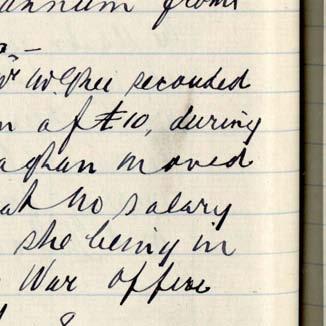 annum from
Mr McGhee seconded
of £10, during
moved
no salary
she being in
War office